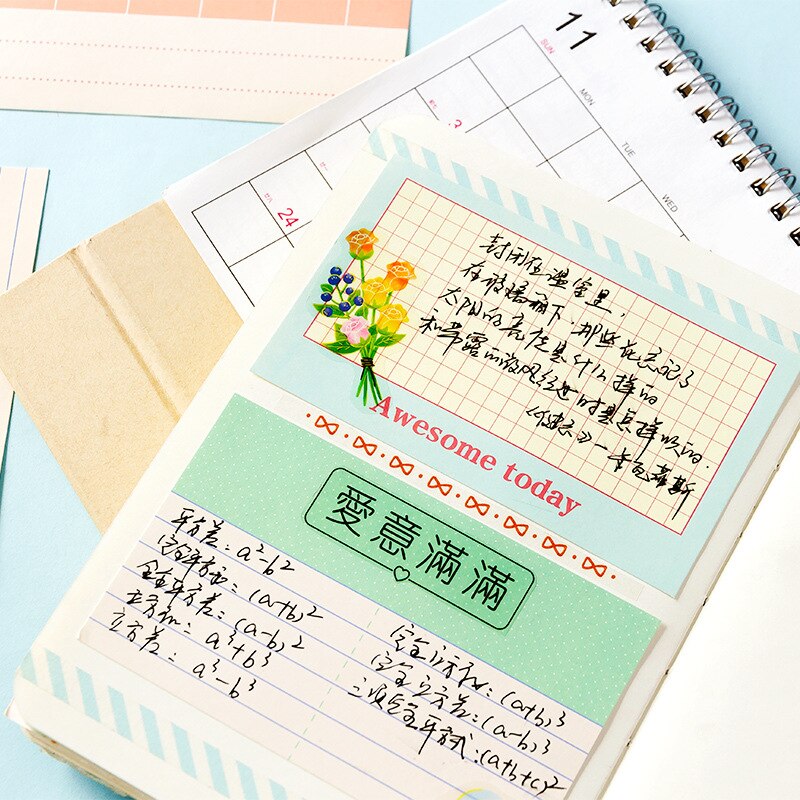 11
SUN
MON
TUE
WED
3
24
封闭在温室里,
在被墙栅下,那些花忘记了
太阳的亮度是什么样的
和带露的微风经过时是怎样吹的.
——卡瓦菲斯
Awesome today
愛意滿滿
平方差:a²-b²
完全平方和:(a+b)²
完全平方差:(a-b)²
立方和:a³+b³
立方差:a³-b³
完全立方和:(a+b)³
完全立方差:(a-b)³
三项完全平方式:(a+b+c)²